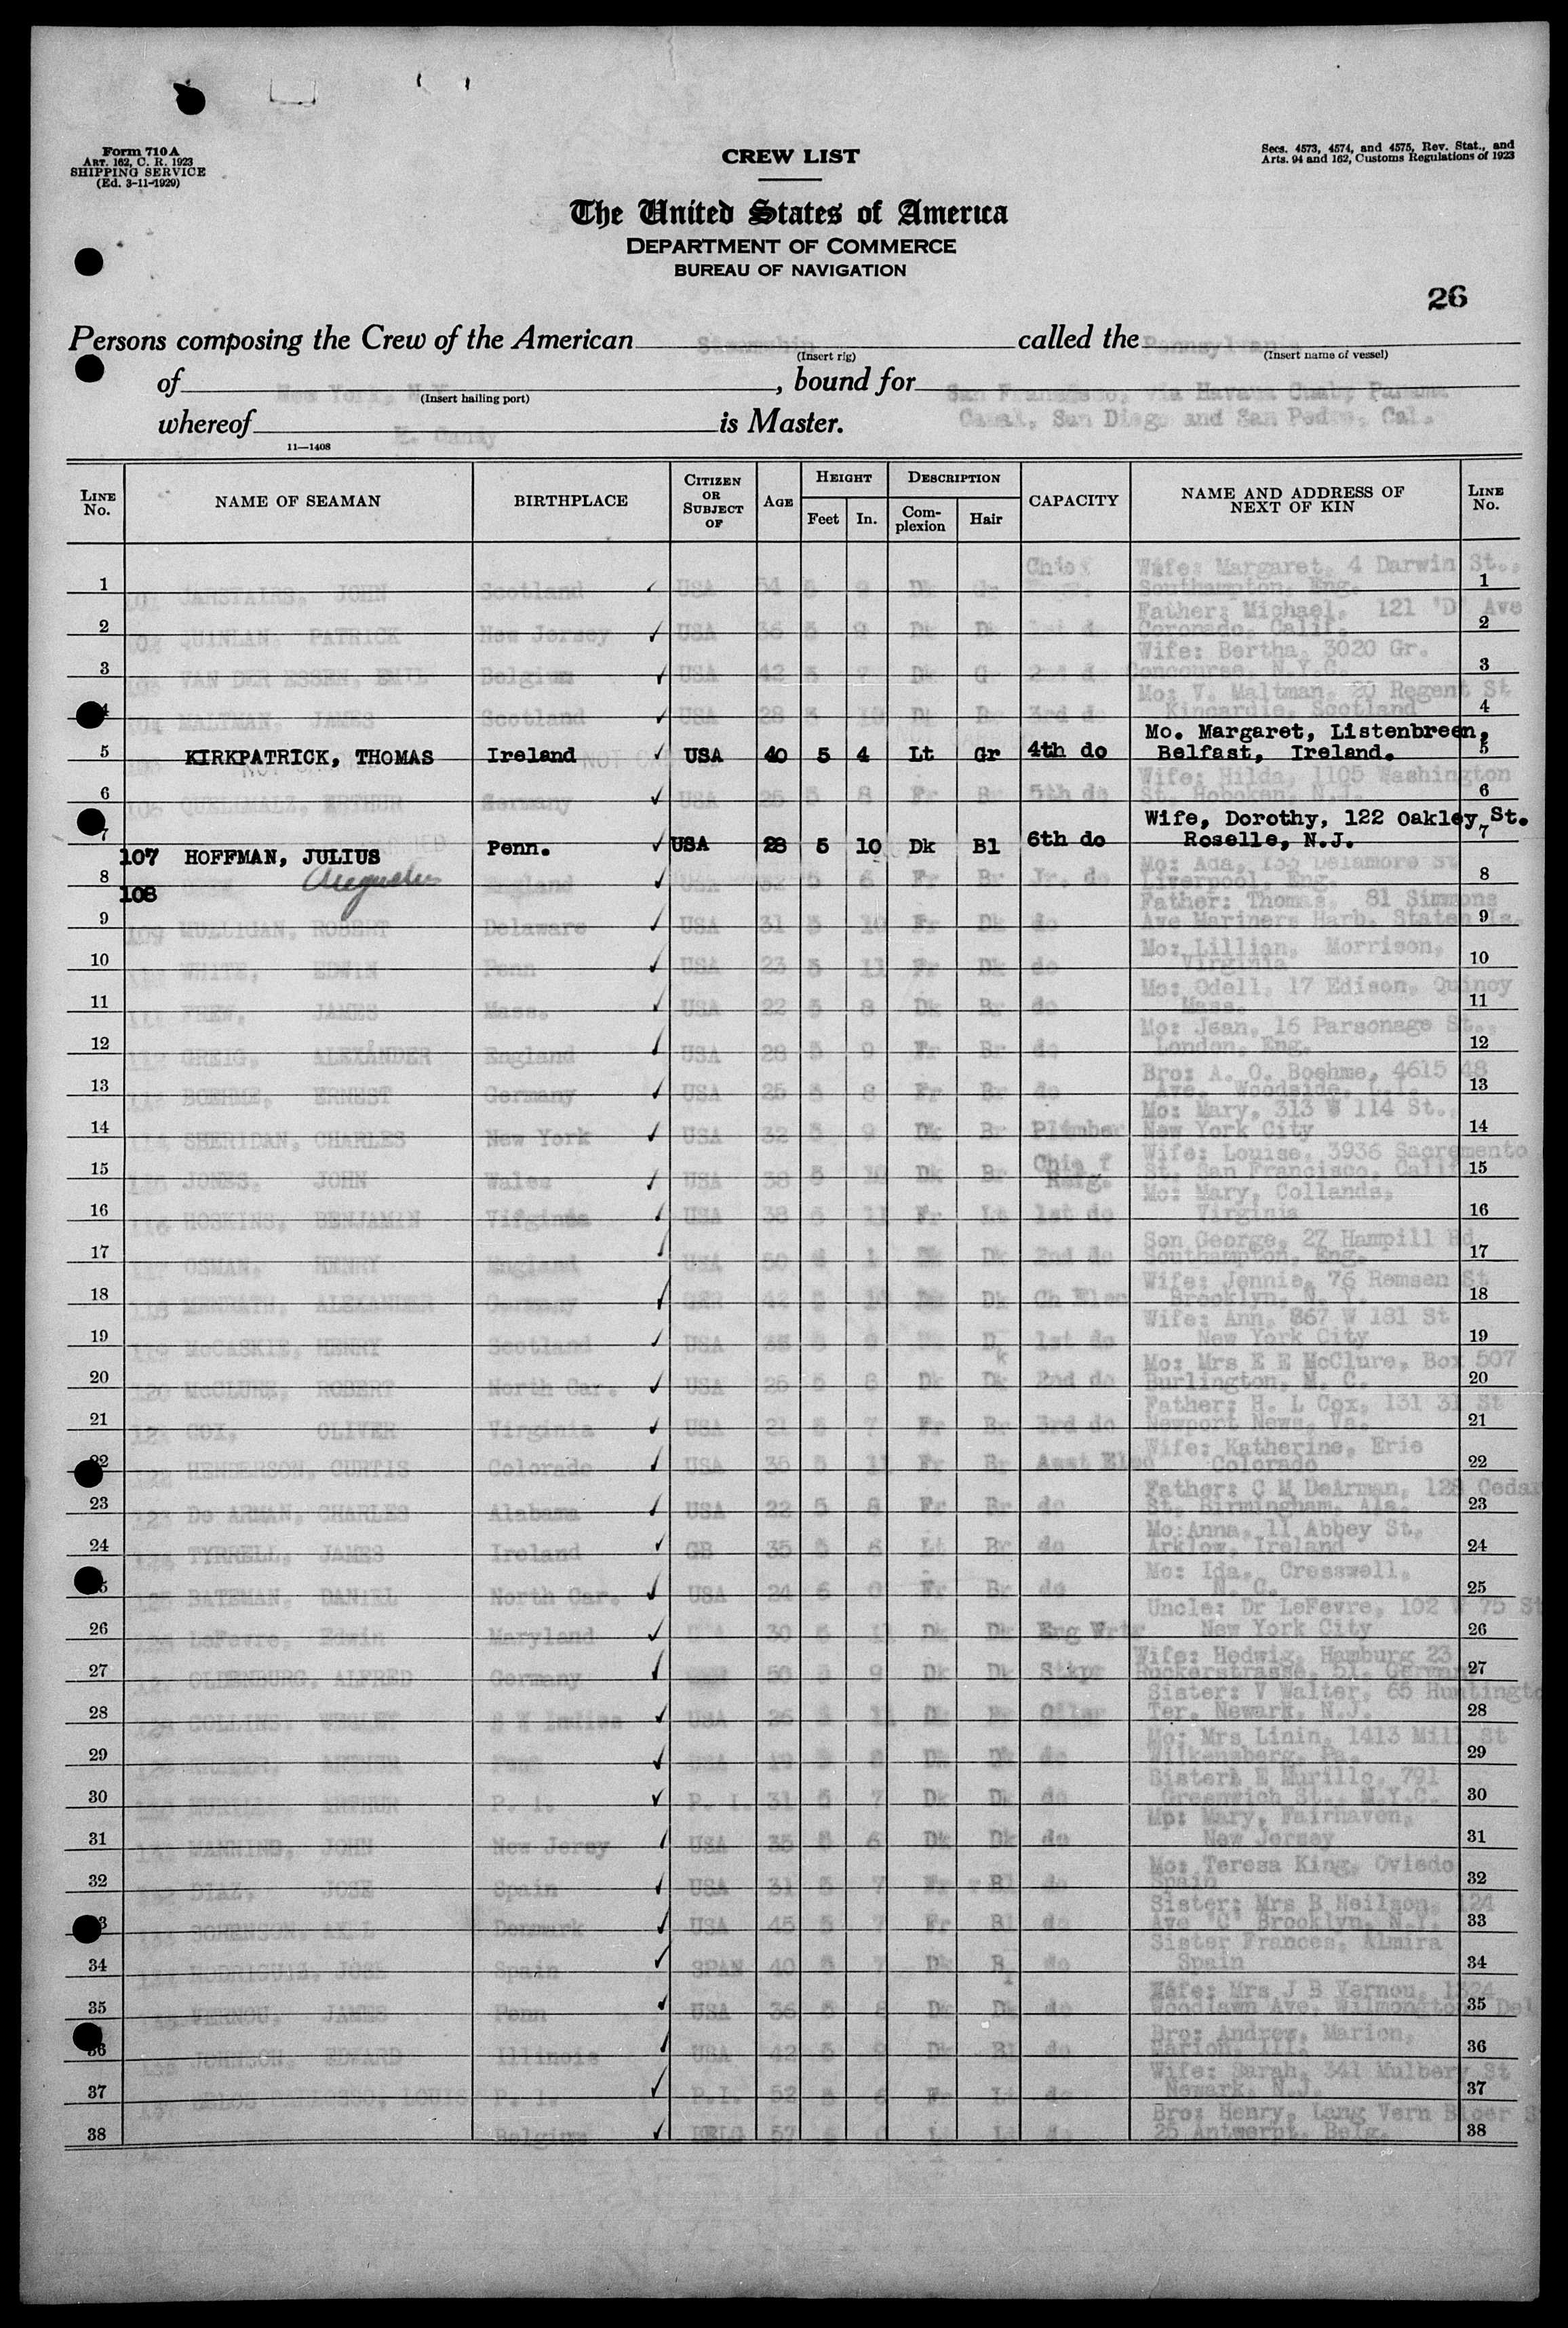 Form 710A
ART. 162, C. R. 1923
SHIPPING SERVICE
(Ed. 3-11-1929)
CREW LIST
Secs. 4573, 4574, and 4575, Rev. Stat., and
Arts. 94 and 162, Customs Regulations of 1923
The United States of America
DEPARTMENT OF COMMERCE
BUREAU OF NAVIGATION
26
Persons composing the Crew of the American Steamship called the Pennsylvania
(Insert rig) (Insert name of vessel)
of New York, N.Y. , bound for San Francisco, via Havana Cuba, Panama
(Insert hailing port)
whereof is Master. Canal, San Diego and San Pedro, Cal.
11—1408
LINE No. NAME OF SEAMAN BIRTHPLACE CITIZEN OR SUBJECT OF AGE HEIGHT Feet In. DESCRIPTION Complexion Hair CAPACITY NAME AND ADDRESS OF NEXT OF KIN LINE No.
Chief Wife: Margaret, 4 Darwin St.,
1 CARSTAIRS, JOHN Scotland ✓ USA 54 5 9 Dk Gr Southampton, Eng. 1
Father: Michael, 121 "D" Ave
2 QUINLAN, PATRICK New Jersey ✓ USA 36 5 9 Dk Dk 1st do Coronado, Calif. 2
Wife: Bertha, 3020 Gr.
3 VAN DER ESSEN, EMIL Belgium ✓ USA 42 5 7 Dk Gr 2nd do Concourse, N.Y.C. 3
Mo: V. Maltman, 20 Regent St
4 104 MALTMAN, JAMES Scotland ✓ USA 28 5 10 Dk Br 3rd do Kincardie, Scotland 4
Mo. Margaret, Listenbreen,
5 KIRKPATRICK, THOMAS Ireland ✓ USA 40 5 4 Lt Gr 4th do Belfast, Ireland. 5
Wife: Hilda, 1105 Washington
6 106 QUELLMALZ, ARTHUR Germany ✓ USA 26 5 8 Fr Br 5th do St. Hoboken, N.J. 6
Wife, Dorothy, 122 Oakley St.
7 107 HOFFMAN, JULIUS Penn. ✓ USA 28 5 10 Dk Bl 6th do Roselle, N.J. 7
Augustus
Mo: Ada, 155 Delamore St
8 108 England ✓ USA 32 5 6 Fr Br Jr. do Liverpool, Eng. 8
Father: Thomas, 81 Simmons
9 109 MULLIGAN, ROBERT Delaware ✓ USA 31 5 10 Fr Dk do Ave Mariners Harb. Staten Is. 9
Mo: Lillian, Morrison,
10 WHITE, EDWIN Penn ✓ USA 23 5 11 Fr Dk do Virginia 10
Mo: Odell, 17 Edison, Quincy
11 111 FREW, JAMES Mass. ✓ USA 22 5 8 Dk Br do Mass. 11
Mo: Jean, 16 Parsonage St.,
12 112 GREIG, ALEXANDER England ✓ USA 28 5 9 Fr Br do London, Eng. 12
Bro: A. O. Boehme, 4615 48
13 BOEHME, ERNEST Germany ✓ USA 25 5 8 Fr Br do Ave. Woodside, L.I. 13
Mo: Mary, 313 W 114 St.,
14 114 SHERIDAN, CHARLES New York ✓ USA 32 5 9 Dk Br Plumber New York City 14
Wife: Louise, 3936 Sacremento
15 JONES, JOHN Wales ✓ USA 38 5 10 Dk Br Chief Refg. St. San Francisco, Calif 15
Mo: Mary, Collands,
16 116 HOSKINS, BENJAMIN Virginia ✓ USA 38 5 11 Fr Lt 1st do Virginia 16
Son George, 27 Hampill Rd
17 117 OSMAN, HENRY England ✓ USA 50 1 Dk 2nd do Southampton, Eng. 17
Wife: Jennie, 76 Remsen St
18 118 MENRATH, ALEXANDER Germany ✓ GER 42 5 10 Dk Ch Elec Brooklyn, N. Y. 18
Wife: Ann, 867 W 181 St
19 119 McCASKIE, HENRY Scotland ✓ USA 5 9 Dk 1st do New York City 19
Mo: Mrs E E McClure, Box 507
20 120 McCLURE, ROBERT North Car. ✓ USA 26 5 8 Dk Dk 2nd do Burlington, N. C. 20
Father: H. L Cox, 131 31 St
21 121 COX, OLIVER Virginia ✓ USA 21 5 7 Fr Br 3rd do Newport News, Va. 21
Wife: Katherine, Erie
22 122 HENDERSON, CURTIS Colorado ✓ USA 35 5 11 Fr Br Asst Elec Colorado 22
Father: C M DeArman, 128 Cedar
23 123 De ARMAN, CHARLES Alabama ✓ USA 22 5 8 Fr Br do St. Birmingham, Ala. 23
Mo:Anna, 11 Abbey St,
24 TYRRELL, JAMES Ireland ✓ GB 35 5 6 Lt Br do Arklow, Ireland 24
Mo: Ida, Cresswell,
25 125 BATEMAN, DANIEL North Car. ✓ USA 24 6 0 Fr Br do N. C. 25
Uncle: Dr LeFevre, 102 W 75 St
26 LeFevre, Edwin Maryland ✓ 30 5 11 Dk Dk Eng Wrtr New York City 26
Wife: Hedwig, Hamburg 23
27 127 OLDENBURG, ALFRED Germany ✓ 50 5 9 Dk Dk Stkpr Ruckerstrasse, 51, German 27
Sister: V Walter, 65 Huntingto
28 128 COLLINS, WESLEY B W Indies ✓ USA 26 11 Dk Br Oiler Ter. Newark, N.J. 28
Mo: Mrs Linin, 1413 Mill St
29 ARTHUR Penn ✓ USA 19 8 Dk Dk do Wilkensberg, Pa. 29
Sister: E Murillo, 791
30 ARTHUR P. I. ✓ P. I. 31 5 7 Dk Dk do Greenwich St., N.Y.C. 30
Mp: Mary, Fairhaven,
31 MANNING, JOHN New Jersy ✓ USA 35 5 6 Dk Dk do New Jersey 31
Mo: Teresa King, Oviedo
32 DIAZ, JOSE Spain ✓ USA 31 5 7 Fr Bl do Spain 32
Sister: Mrs B Neilson, 124
33 AXEL Denmark ✓ USA 45 5 7 Fr Bl do Ave "C" Brooklyn, N.Y. 33
Sister Frances, Almira
34 RODRIGUIZ, JOSE Spain ✓ SPAN 40 5 7 Dk Br do Spain 34
Wife: Mrs J B Vernou, 1324
35 VERNOU, JAMES Penn ✓ USA 36 5 8 Dk Dk do Woodlawn Ave. Wilmongton Del 35
Bro: Andrew, Marion,
36 JOHNSON, EDWARD Illinois ✓ USA 42 5 9 Dk Bl do Marion, Ill. 36
Wife: Sarah, 341 Mulbery St
37 137 LOUIS P. I. ✓ P.I. 52 5 6 Fr Lt do Newark, N.J. 37
Bro: Henry, Lang Vern
38 Belgium ✓ BELG 57 Lt Lt do 25 Antwerpt, Belg. 38